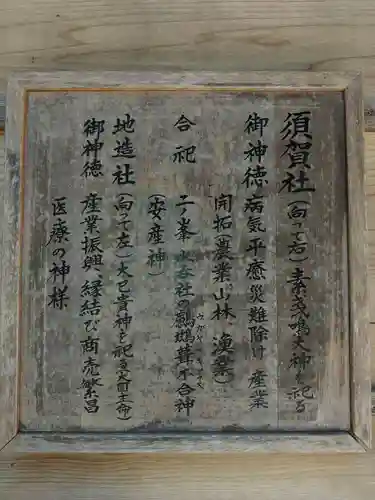 須賀社(向って右)素戔嗚大神を祀る
御神徳 病気平癒災難除け 産業
開拓(農業山林、漁業)
合祀 二ノ峯 社の鸕鷀葺不合神
(安産神)
地造社(向って左)大己貴神を祀る(大国主命)
御神徳 産業振興、縁結び商売繁昌
医療の神様